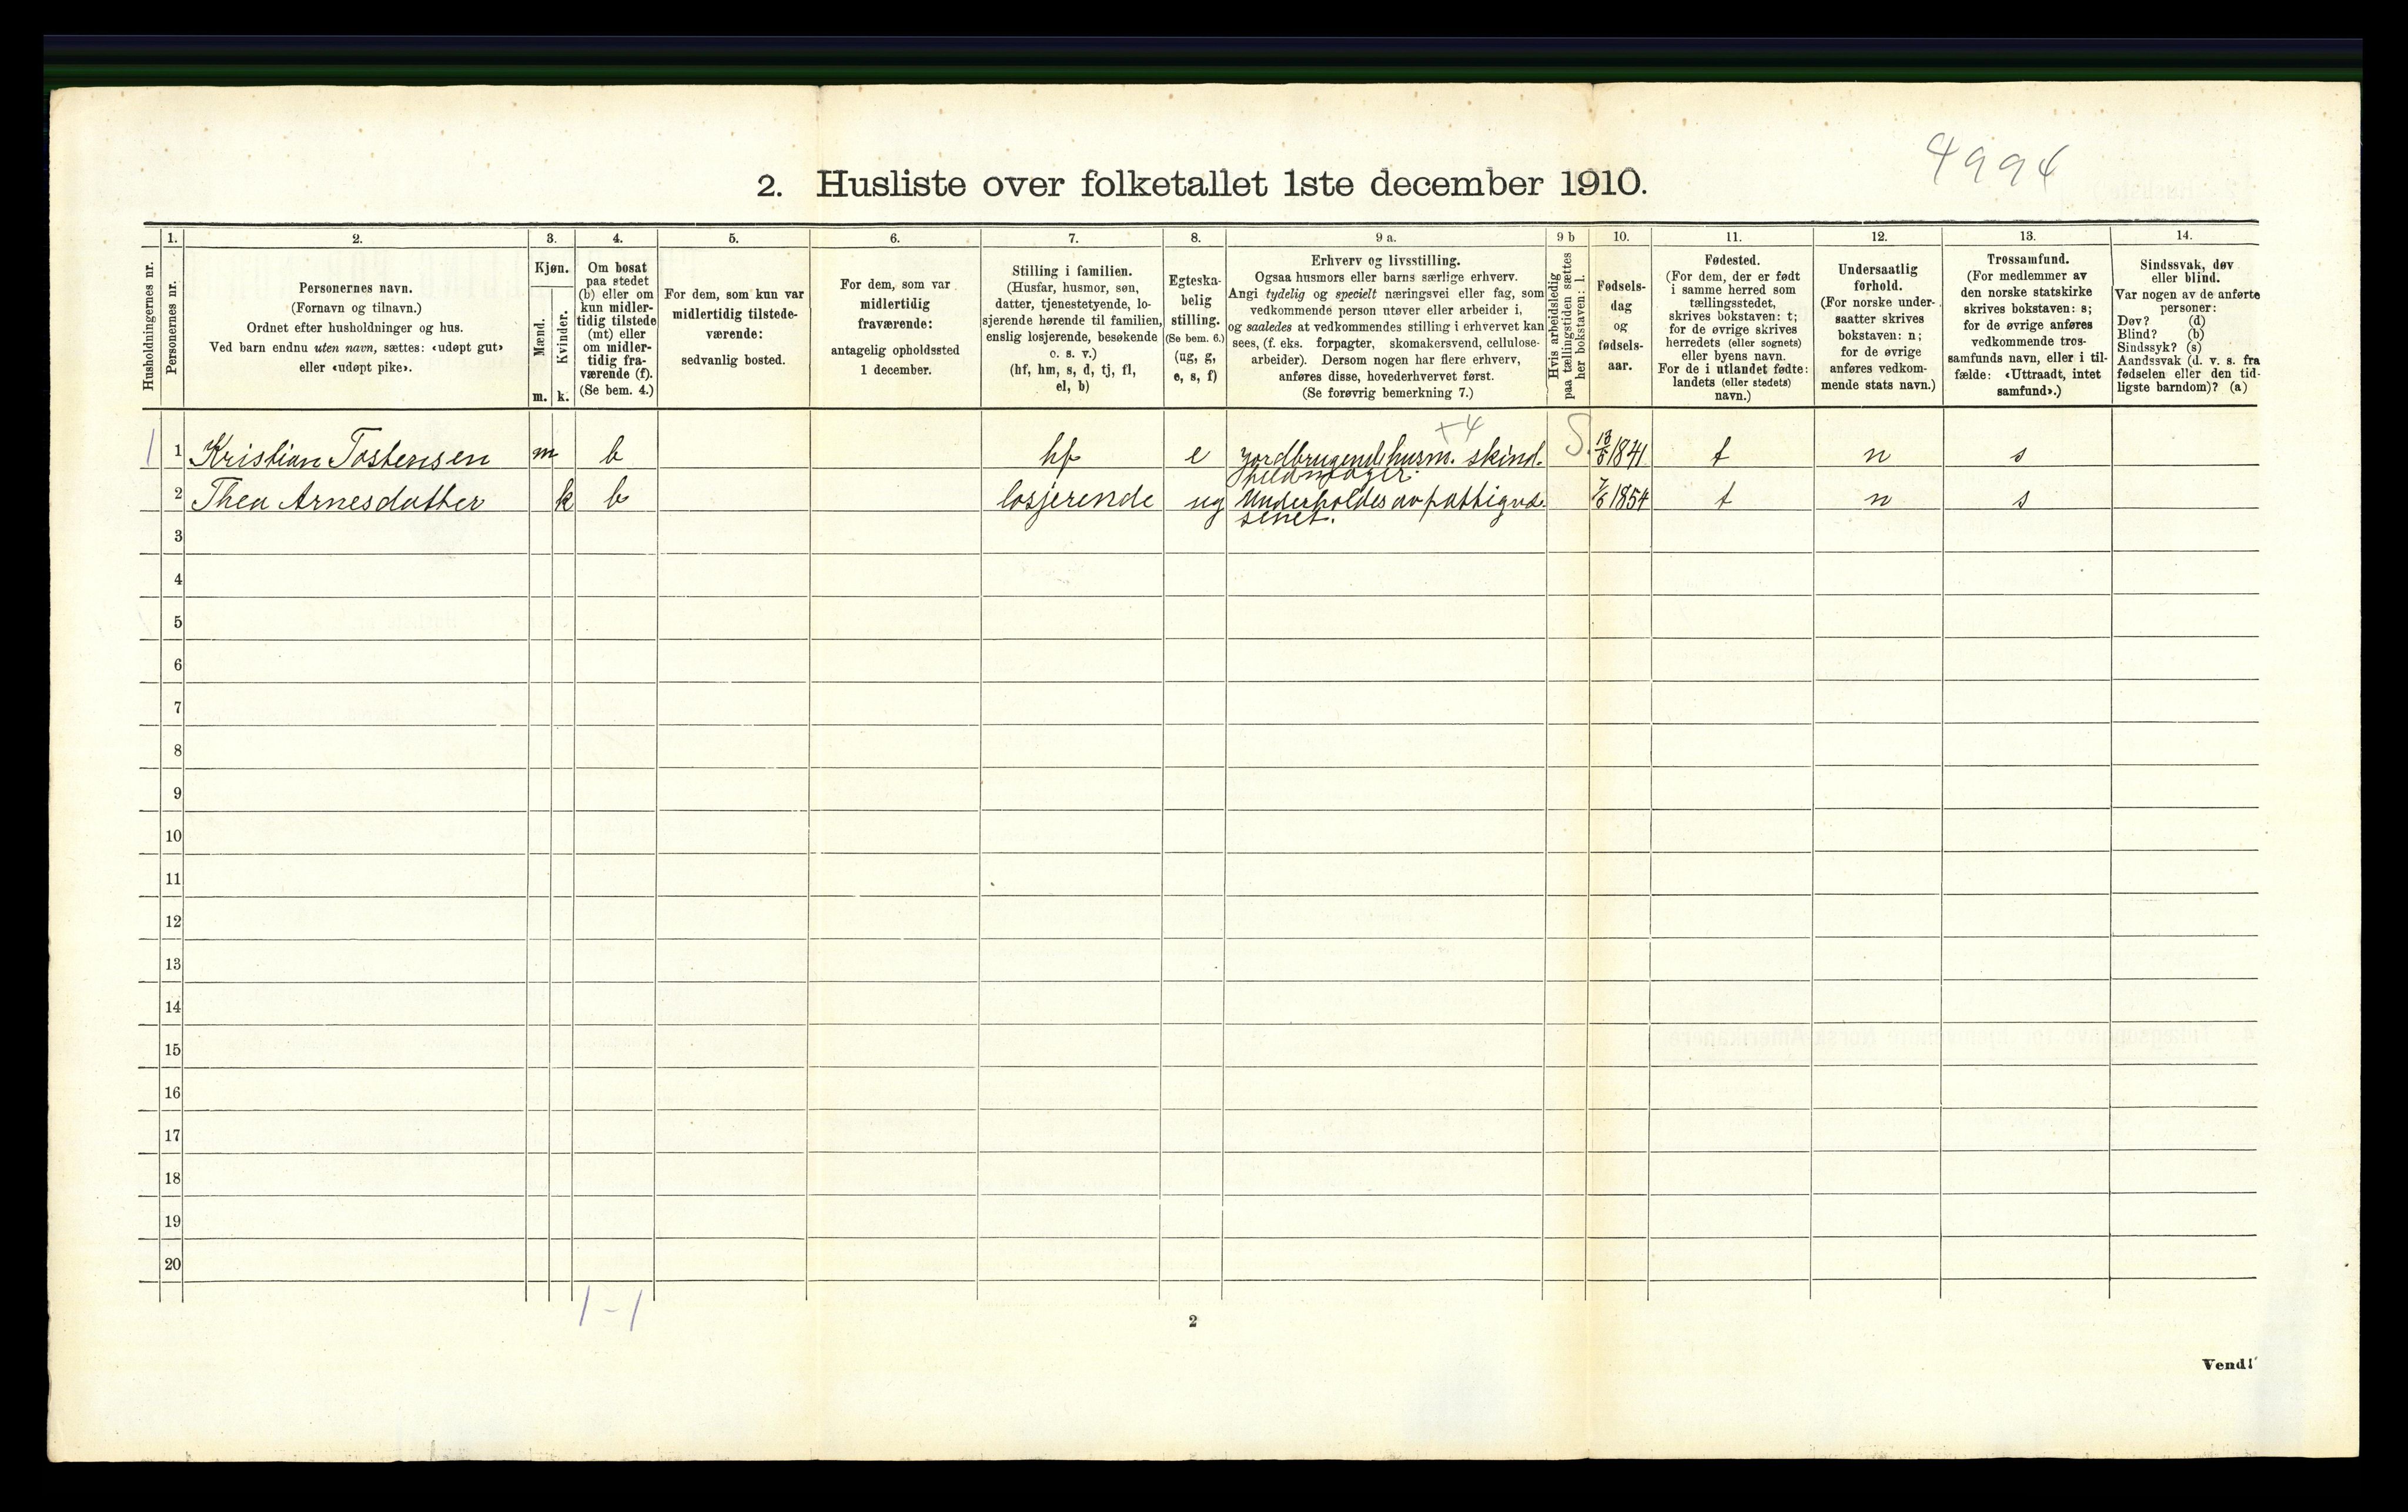 4994
2. Husliste over folketallet 1ste december 1910.
Husholdningernes nr.
1.
Personernes nr.
2.
Personernes navn.
(Fornavn og tilnavn.)
Ordnet efter husholdninger og hus.
Ved barn endnu uten navn, sættes: «udøpt gut»
eller «udøpt pike».
3.
Kjøn.
Mænd.
Kvinder.
m. k.
4.
Om bosat
paa stedet
(b) eller om
kun midler-
tidig tilstede
(mt) eller
om midler-
tidig fra-
værende (f).
(Se bem. 4.)
5.
For dem, som kun var
midlertidig tilstede-
værende:
sedvanlig bosted.
6.
For dem, som var
midlertidig
fraværende:
antagelig opholdssted
1 december.
7.
Stilling i familien.
(Husfar, husmor, søn,
datter, tjenestetyende, lo-
sjerende hørende til familien,
enslig losjerende, besøkende
o. s. v.)
(hf, hm, s, d, tj, fl,
el, b)
8.
Egteska-
belig
stilling.
(Se bem. 6.)
(ug, g,
e, s, f)
9 a.
Erhverv og livsstilling.
Ogsaa husmors eller barns særlige erhverv.
Angi tydelig og specielt næringsvei eller fag, som
vedkommende person utøver eller arbeider i,
og saaledes at vedkommendes stilling i erhvervet kan
sees, (f. eks. forpagter, skomakersvend, cellulose-
arbeider). Dersom nogen har flere erhverv,
anføres disse, hovederhvervet først.
(Se forøvrig bemerkning 7.)
9 b
Hvis arbeidsledig
paa tællingstiden sættes
her bokstaven: l.
10.
Fødsels-
dag
og
fødsels-
aar.
11.
Fødested.
(For dem, der er født
i samme herred som
tællingsstedet,
skrives bokstaven: t;
for de øvrige skrives
herredets (eller sognets)
eller byens navn.
For de i utlandet fødte:
landets (eller stedets)
navn.)
12.
Undersaatlig
forhold.
(For norske under-
saatter skrives
bokstaven: n;
for de øvrige
anføres vedkom-
mende stats navn.)
13.
Trossamfund.
(For medlemmer av
den norske statskirke
skrives bokstaven: s;
for de øvrige anføres
vedkommende tros-
samfunds navn, eller i til-
fælde: «Uttraadt, intet
samfund».)
14.
Sindssvak, døv
eller blind.
Var nogen av de anførte
personer:
Døv? (d)
Blind? (b)
Sindssyk? (s)
Aandssvak (d. v. s. fra
fødselen eller den tid-
ligste barndom)? (a)
+4
1 1 Kristian Tostensen m b hf e Jordbrugend. husm. skind- S. 13/5 1841 t n s
feldmager.
2 Thea Arnesdatter k b losjerende ug Underholdes av fattigvæ- 7/6 1854 t n s
senet.
3
4
5
6
7
8
9
10
11
12
13
14
15
16
17
18
19
20
1 - 1
2
Vend!